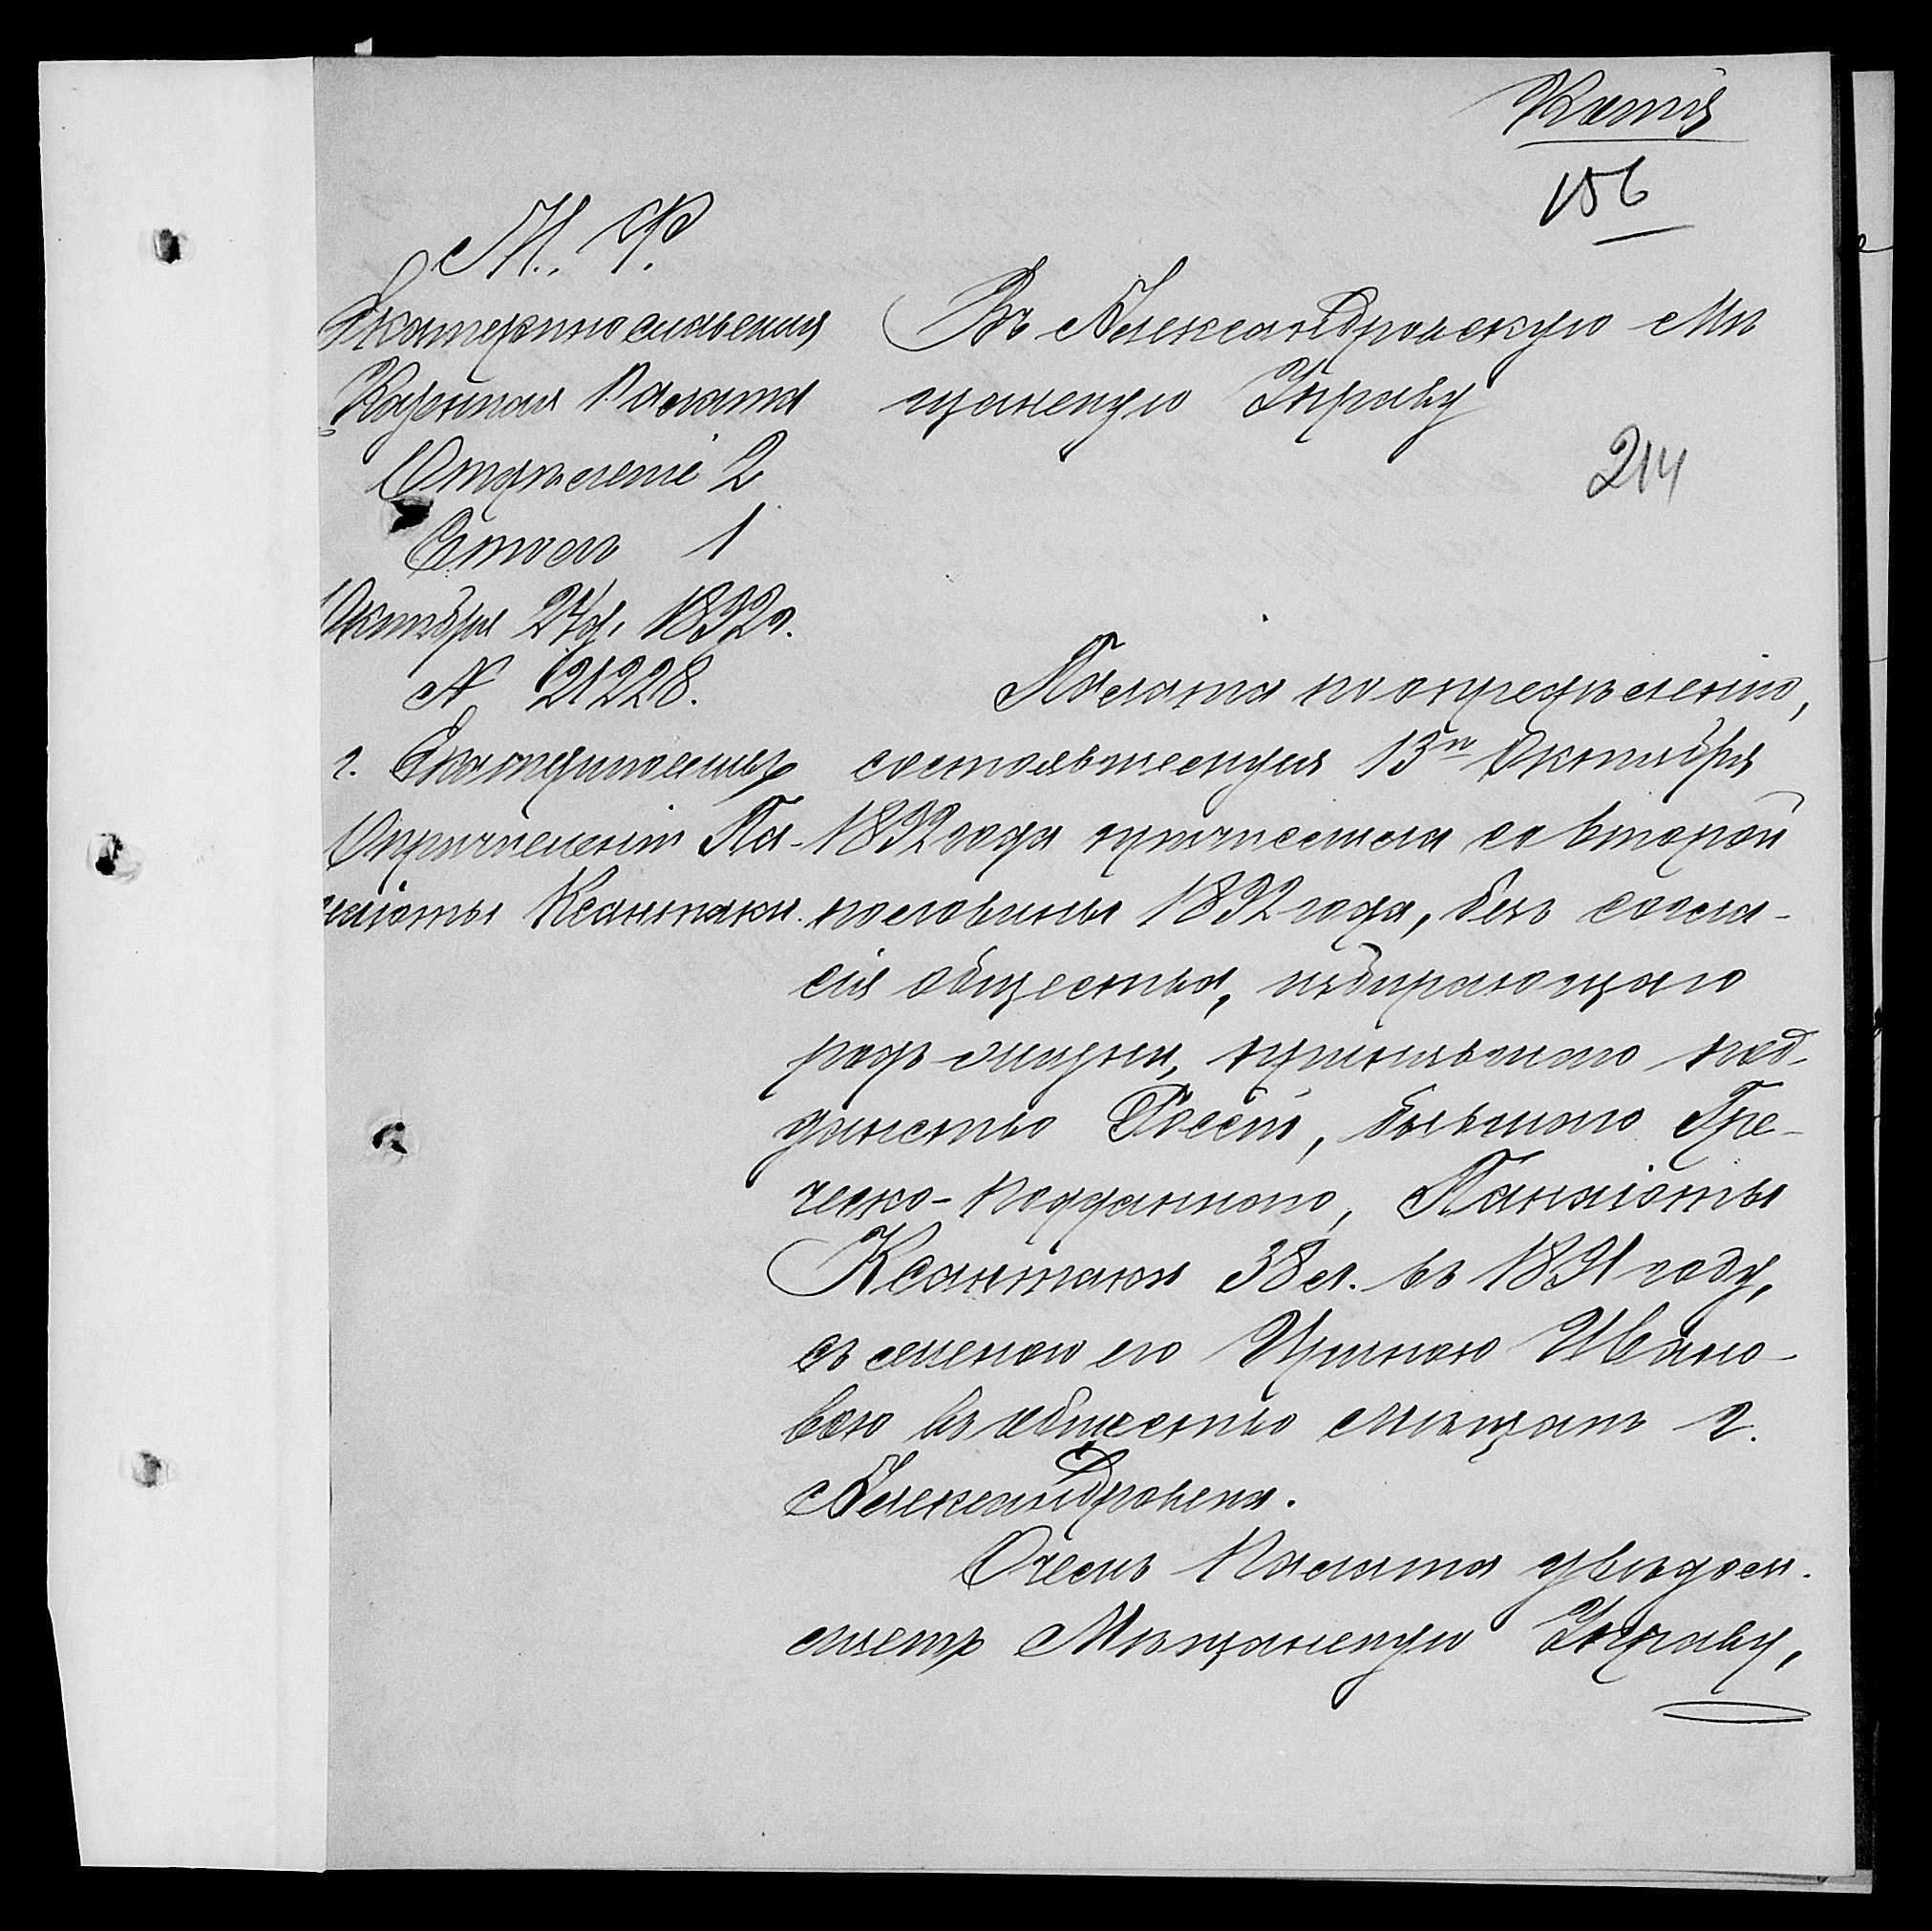 Копія
156
М. Ф.
Екатеринославская
Казенная Палата
Отдѣленіе 2
Столъ 1
Октября 27 д. 1892 г.
№ 21228.
г. Екатеринославъ
О причисленіи Па-
наіоты Ксантаки.
Въ Александровскую Мѣ
щанскую Управу
214
Палата по опредѣленію,
состоявшемуся 13го Октября
1892 года причислила со второй
половины 1892 года, безъ согла-
сія общества, избирающаго
родъ жизни, принявшаго под-
данство Россіи, бывшаго Гре-
ческо-подданнаго, Панаіоты
Ксантаки 38 л. въ 1891 году,
съ женою его Ириною Ивано-
вою въ общество мѣщанъ г.
Александровска.
О чемъ Палата увѣдом-
ляетъ Мѣщанскую Управу,